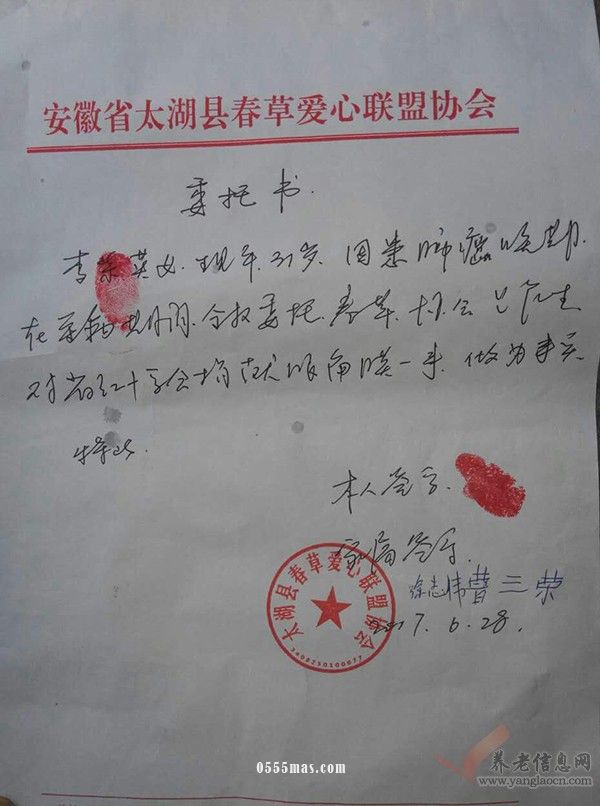 安徽省太湖县春草爱心联盟协会
委托书.
李荣英女.现年.31岁.因患肺癌晚期.
在 期间.全权委托.春草.协会
对省红十字会捐献眼角膜一事.做为事实
特此.
本人签字.
家属签字.
徐志伟 曹三荣
2017.6.28.
太湖县春草爱心联盟协会
3408250100677
0555mas.com
养老信息网
www.yanglaocn.com